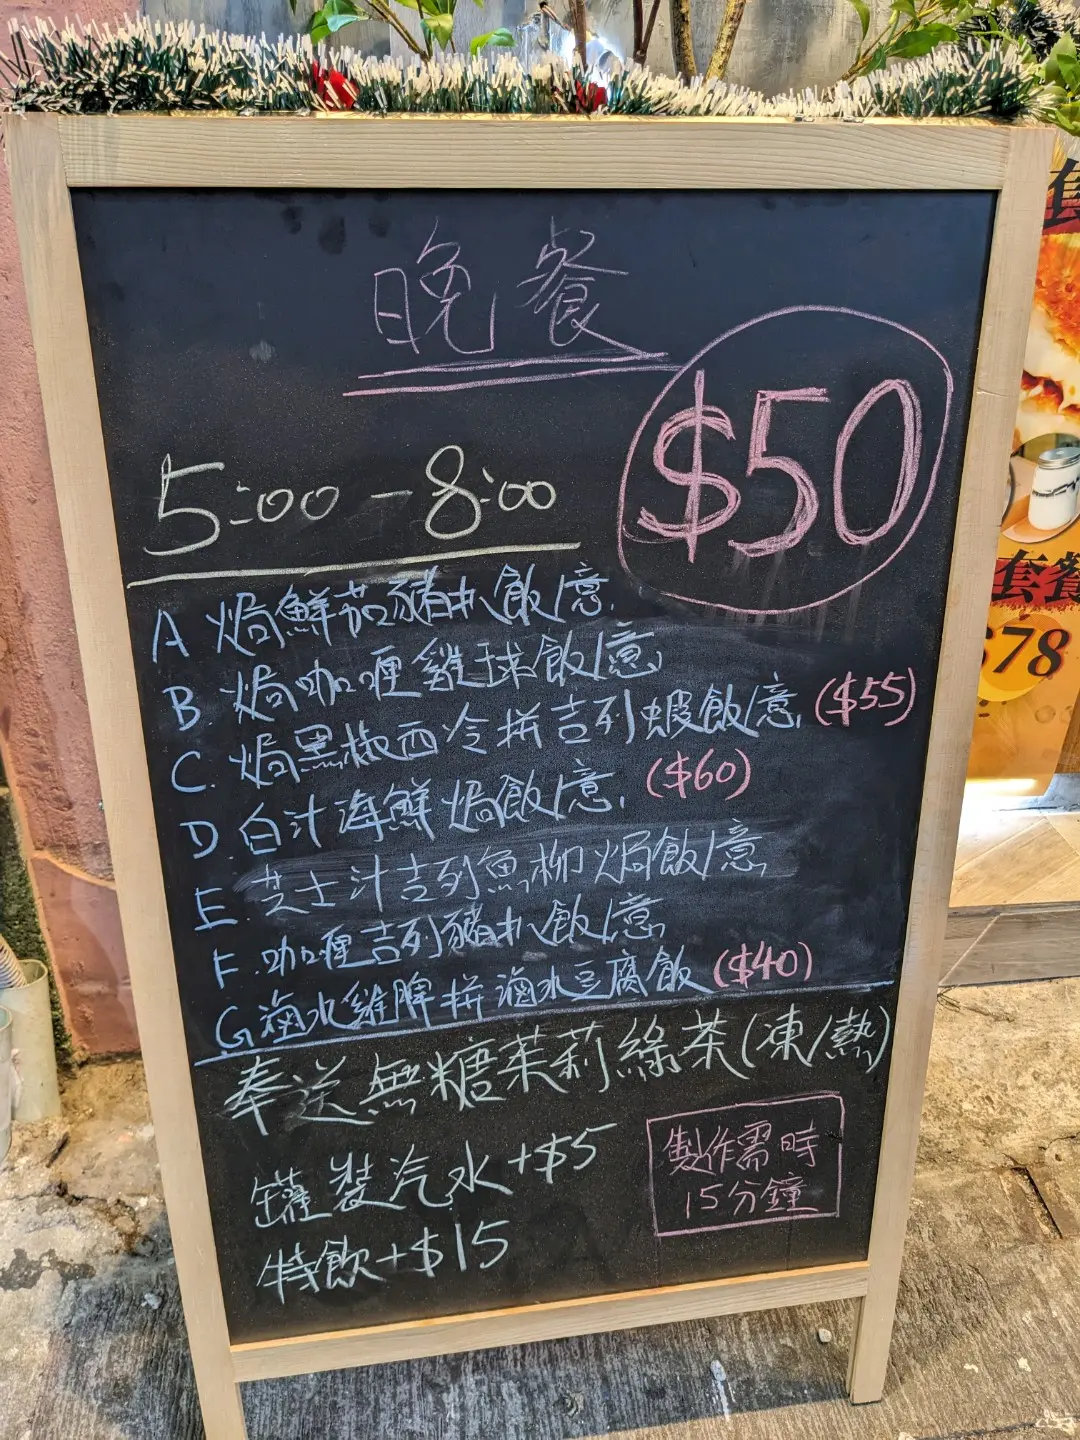 晚餐
$50
5:00-8:00
A 焗鮮茄豬扒飯/意
B. 焗咖喱雞球飯/意
C. 焗黑椒西冷拼吉列蝦飯/意 ($55)
D 白汁海鮮焗飯/意 ($60)
E. 芝士汁吉列魚柳焗飯/意
F. 咖喱吉列豬扒飯/意
G 滷水雞脾拼滷水豆腐飯 ($40)
奉送無糖茉莉綠茶(凍/熱)
罐裝汽水+$5
特飲+$15
製作需時
15分鐘
套
套餐
$78